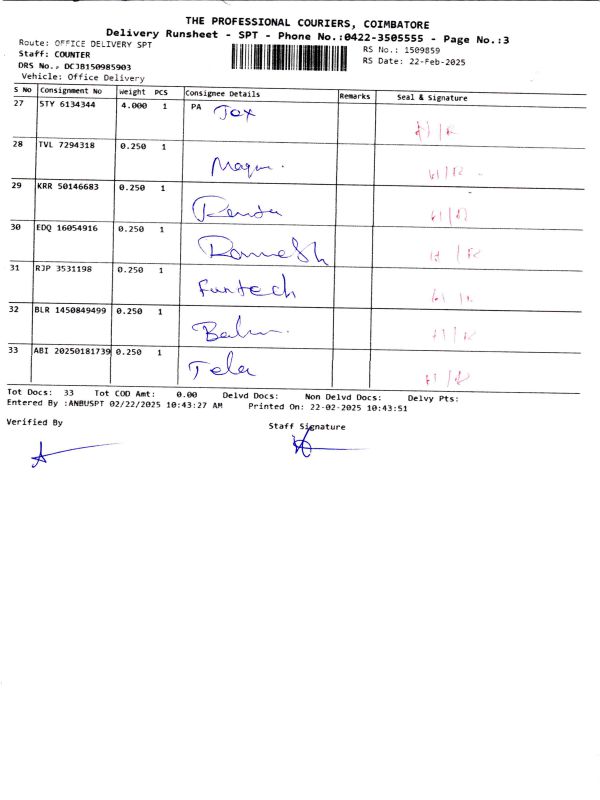 THE PROFESSIONAL COURIERS, COIMBATORE
Delivery Runsheet - SPT - Phone No.:0422-3505555 - Page No.:3
Route: OFFICE DELIVERY SPT
RS No.: 1509859
Staff: COUNTER
RS Date: 22-Feb-2025
DRS No., DCJB150985903
Vehicle: Office Delivery
S No Consignment No Weight PCS Consignee Details Remarks Seal & Signature
27 STY 6134344 4.000 1 PA Tex
28 TVL 7294318 0.250 1
29 KRR 50146683 0.250 1
30 EDQ 16054916 0.250 1 RameSh
31 RJP 3531198 0.250 1 Funtech
32 BLR 1450849499 0.250 1
33 ABI 20250181739 0.250 1
Tot Docs: 33 Tot COD Amt: 0.00 Delvd Docs: Non Delvd Docs: Delvy Pts:
Entered By :ANBUSPT 02/22/2025 10:43:27 AM Printed On: 22-02-2025 10:43:51
Verified By
Staff Signature